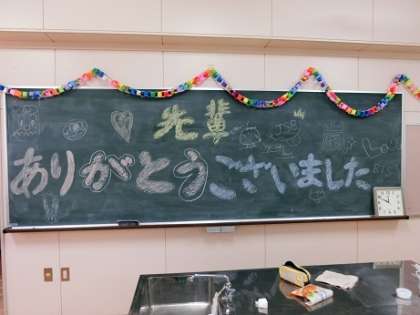 先輩
ありがとうございました